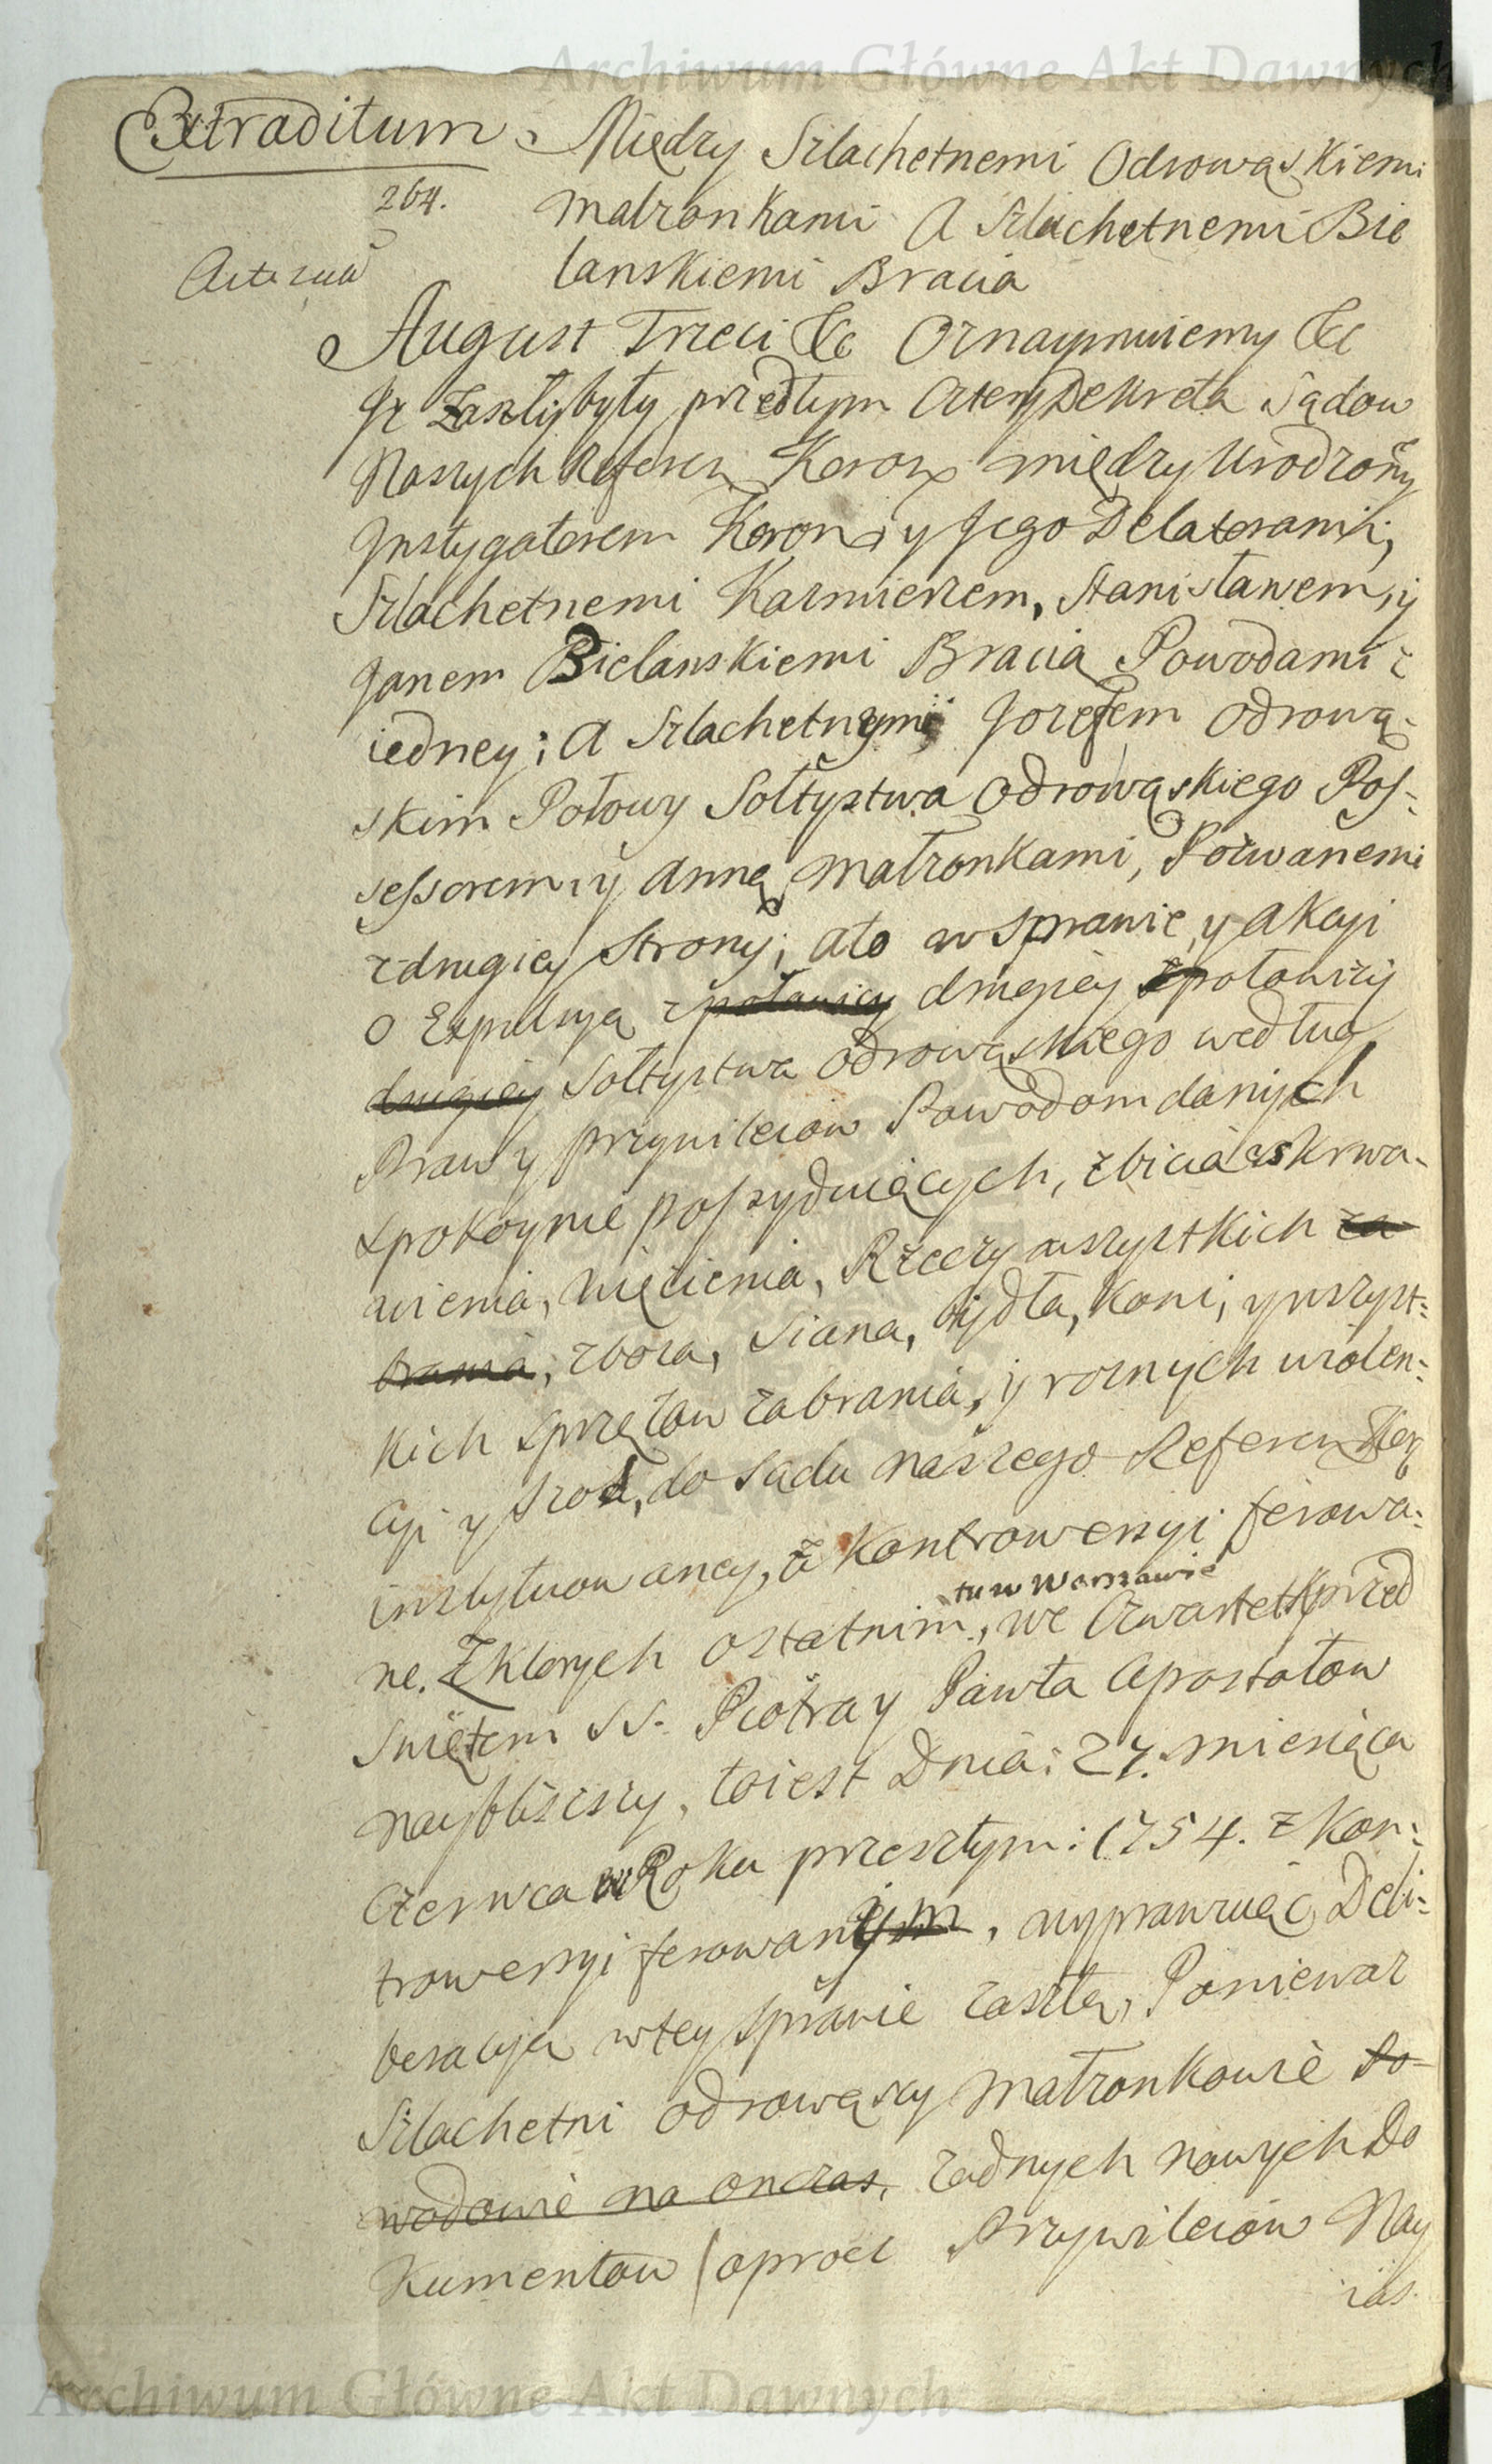 Archiwum Główne Akt Dawnych
Extraditum
Między Szlachetnemi Odrowąskiemi
264.
małzonkami A Szlachetnemi Bie
lanskiemi Bracia
August Trzeci &c Oznaymuiemy &c
Iż Zaszły były przedtym cztery Dekreta Sądow
Naszych Referen Koron między Urodzonym
Instygatorem Koron y Jego Delatorami,
Szlachetnemi Kazmierzem, Stanisławem, y
Janem Bielanskiemi Bracią Powodami z
iedney; A Szlachetnymi Jozefem Odrową-
skim Połowy Sołtystwa Odrowąskiego Pos-
sessorem, y Anną małzonkami, Pozwanemi
z drugiey Strony; ato w sprawie y akcyi
o Expulsyą z połowicy drugiey połowicy
drugiey Sołtystwa Odrowąskiego według
Praw y przywileiow Powodom danych
spokoynie possyduiących, zbicia skrwa-
wienia, więzienia, Rzeczy wszystkich za
brania, zboza, Siana, bydła, koni, y wszyst-
kich sprzętow zabrania, y roznych wiolen-
cyi y szkod, do Sadu naszego Referen Kor
instytuowaney, z kontrowersyi ferowa-
ne. Z ktorych ostatnim, we Czwartek przed
tu w Warszawie
Swiętem SS. Piotra y Pawła Apostołow
nayblizszy, toiest Dnia: 27. miesiąca
Czerwca w Roku przeszłym: 1754. z Kon-
trowersyi ferowanym, wyprawuiąc Deli-
beracya w tey sprawie zaszłą, Poniewaz
Szlachetni Odrowąscy małzonkowie Po-
wodowie na onczas, zadnych nowych Do
kumentow / oprocz Przywileiow Nay
ias.
Archiwum Główne Akt Dawnych